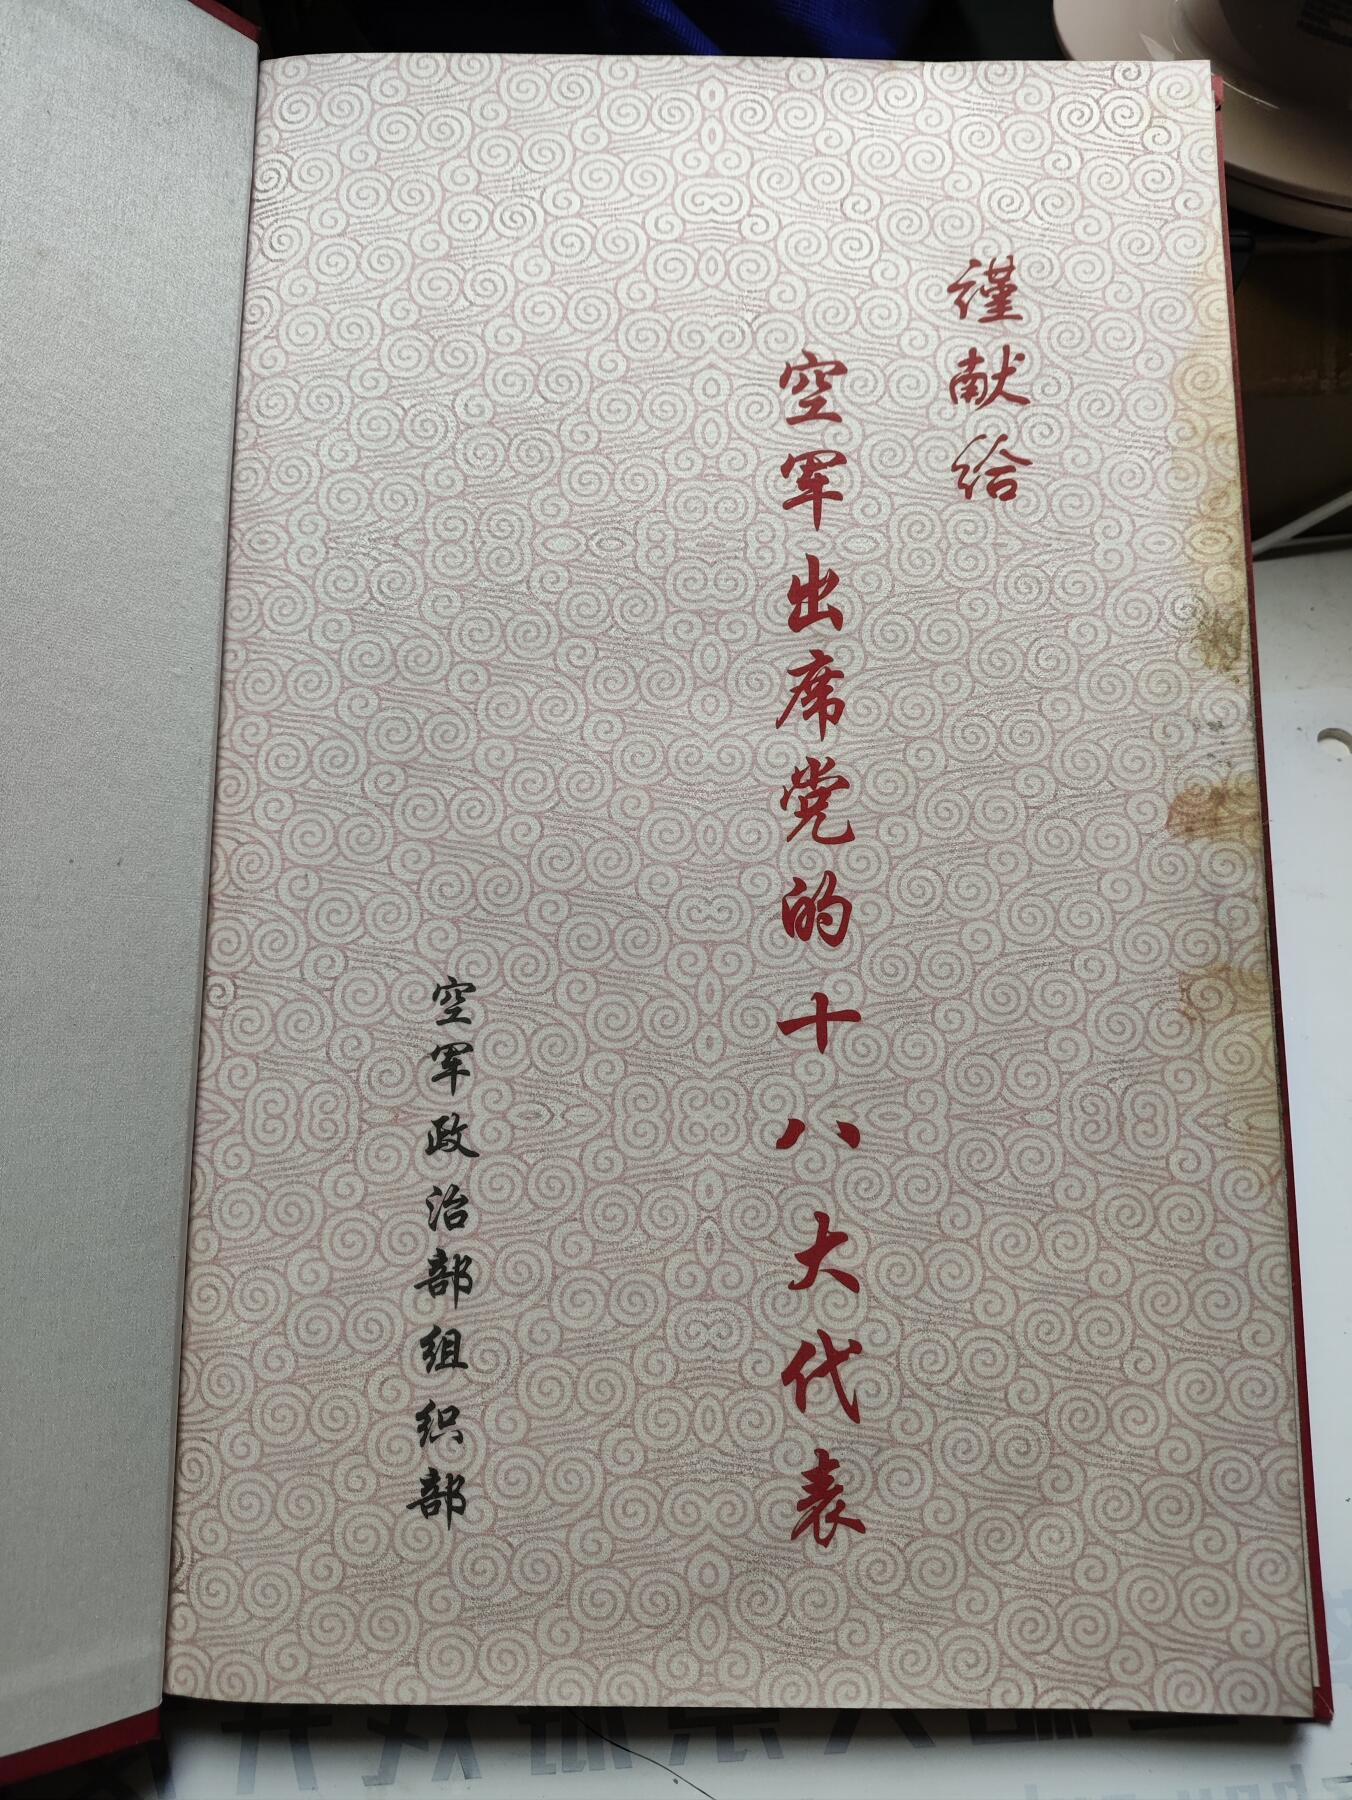 谨献给
空军出席党的十八大代表
空军政治部组织部